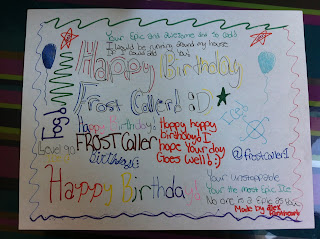 Your Epic and awesome and so odd
I would be running around my house
if I could add you!
Happy Birthday
Frost Callerd :D
Happy Birthday!
Happy happy
birthday! I
hope your day
Goes well (:;)
FROSTCaller
birthday(:
@frostcaller1
Happy Birthday!
Your unstoppable
Your the most Epic Ice
No one is a Epic as you
Made by alex